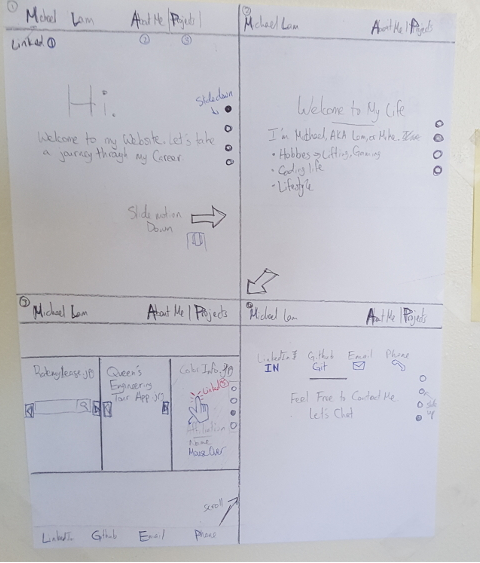 ①
Michael Lam
About Me | Projects |
Linked ①
②
③
Hi.
Slide down
Welcome to my Website. Let's take
a journey through my Career.
Slide motion
Down
②
Michael Lam
About Me | Projects
Welcome to My Life
I'm Michael, AKA Lam, or Mike.
• Hobbies → Lifting, Gaming
• Coding life
• Lifestyle
③
Michael Lam
About Me | Projects
Queen's
Engineering
Tour App.
Info.
Mouse Over
scroll
LinkedIn Github Email Phone
④
Michael Lam
About Me | Projects
LinkedIn Github Email Phone
IN Git
Feel Free to Contact Me.
Let's Chat
Up